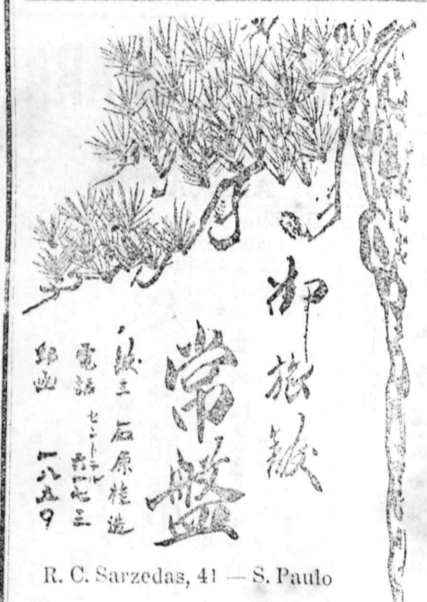 御旅舘
常盤
石原桂造
電話 セントラル
郵函 一八五〇
R. C. Sarzedas, 41 — S. Paulo